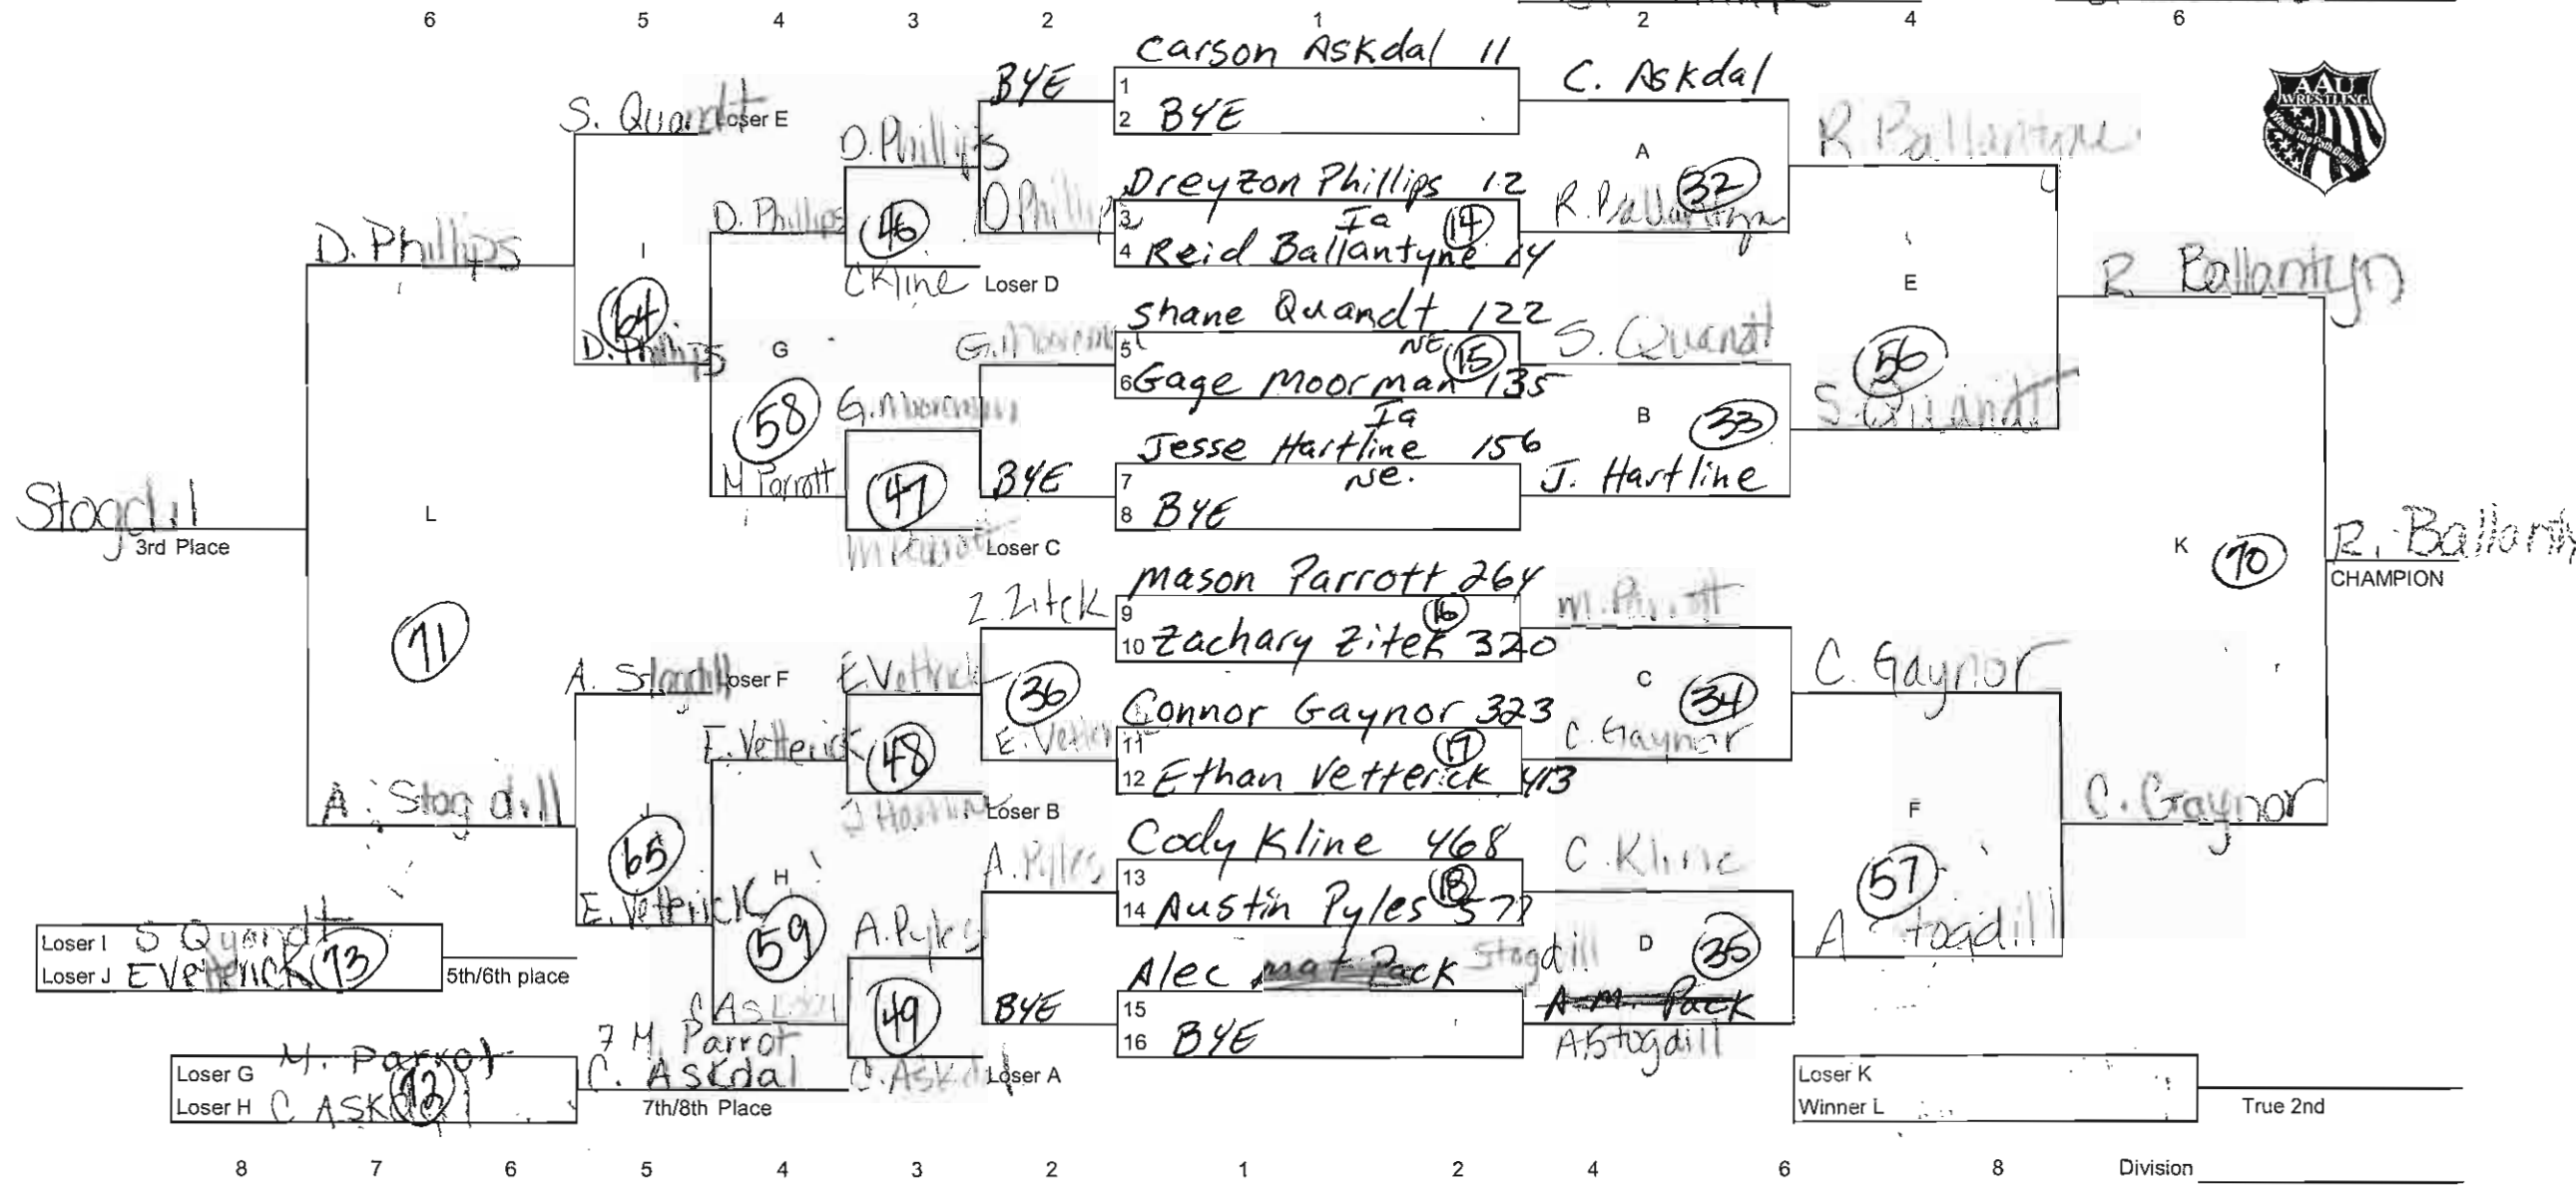 6 5 4 3 2 1 2 4 6
Carson Askdal 11
1
2 BYE
Dreyzon Phillips 12
3 Ia 14
4 Reid Ballantyne 14
Shane Quandt 122
5 NE 15
6 Gage Moorman 135
Ia
Jesse Hartline 156
7 Ne.
8 BYE
Mason Parrott 264
9 16
10 Zachary Zitek 320
Connor Gaynor 323
11 17
12 Ethan Vetterick 413
Cody Kline 468
13 18
14 Austin Pyles 577
Alec Stogdill
15
16 BYE
C. Askdal
A 32
R. Ballantyn
S. Quandt
B 33
J. Hartline
M. Parrott
C 34
C. Gaynor
C. Kline
D 35
A.M. Pack
A. Stogdill
R Ballantyne
E
56
S. Quandt
C. Gaynor
F
57
A Stogdill
AAU
WRESTLING
Where The Path Begins
R. Ballantyn
K 70
C. Gaynor
R. Ballanty
CHAMPION
BYE
D Phillips
G. Moorman
BYE
Z. Zitek
36
E. Vetterick
A. Pyles
BYE
D. Phillips
46
C Kline Loser D
G. Moorman
47
M Parrott Loser C
E. Vetterick
48
J Hartline Loser B
A. Pyles
49
C. Askdal Loser A
D. Phillips
G
58
M Parrott
E. Vetterick
H
59
C Askdal
S. Quandt Loser E
I
64
D. Phillips
A. Stogdill Loser F
J
65
E. Vetterick
D. Phillips
L
71
A. Stogdill
Stogdil
3rd Place
Loser I S Quandt
Loser J E Vetterick 73
5th/6th place
Loser G M. Parrot
Loser H C ASKdal 72
7 M Parrot
C. Askdal
7th/8th Place
Loser K
Winner L
True 2nd
8 7 6 5 4 3 2 1 2 4 6 8 Division